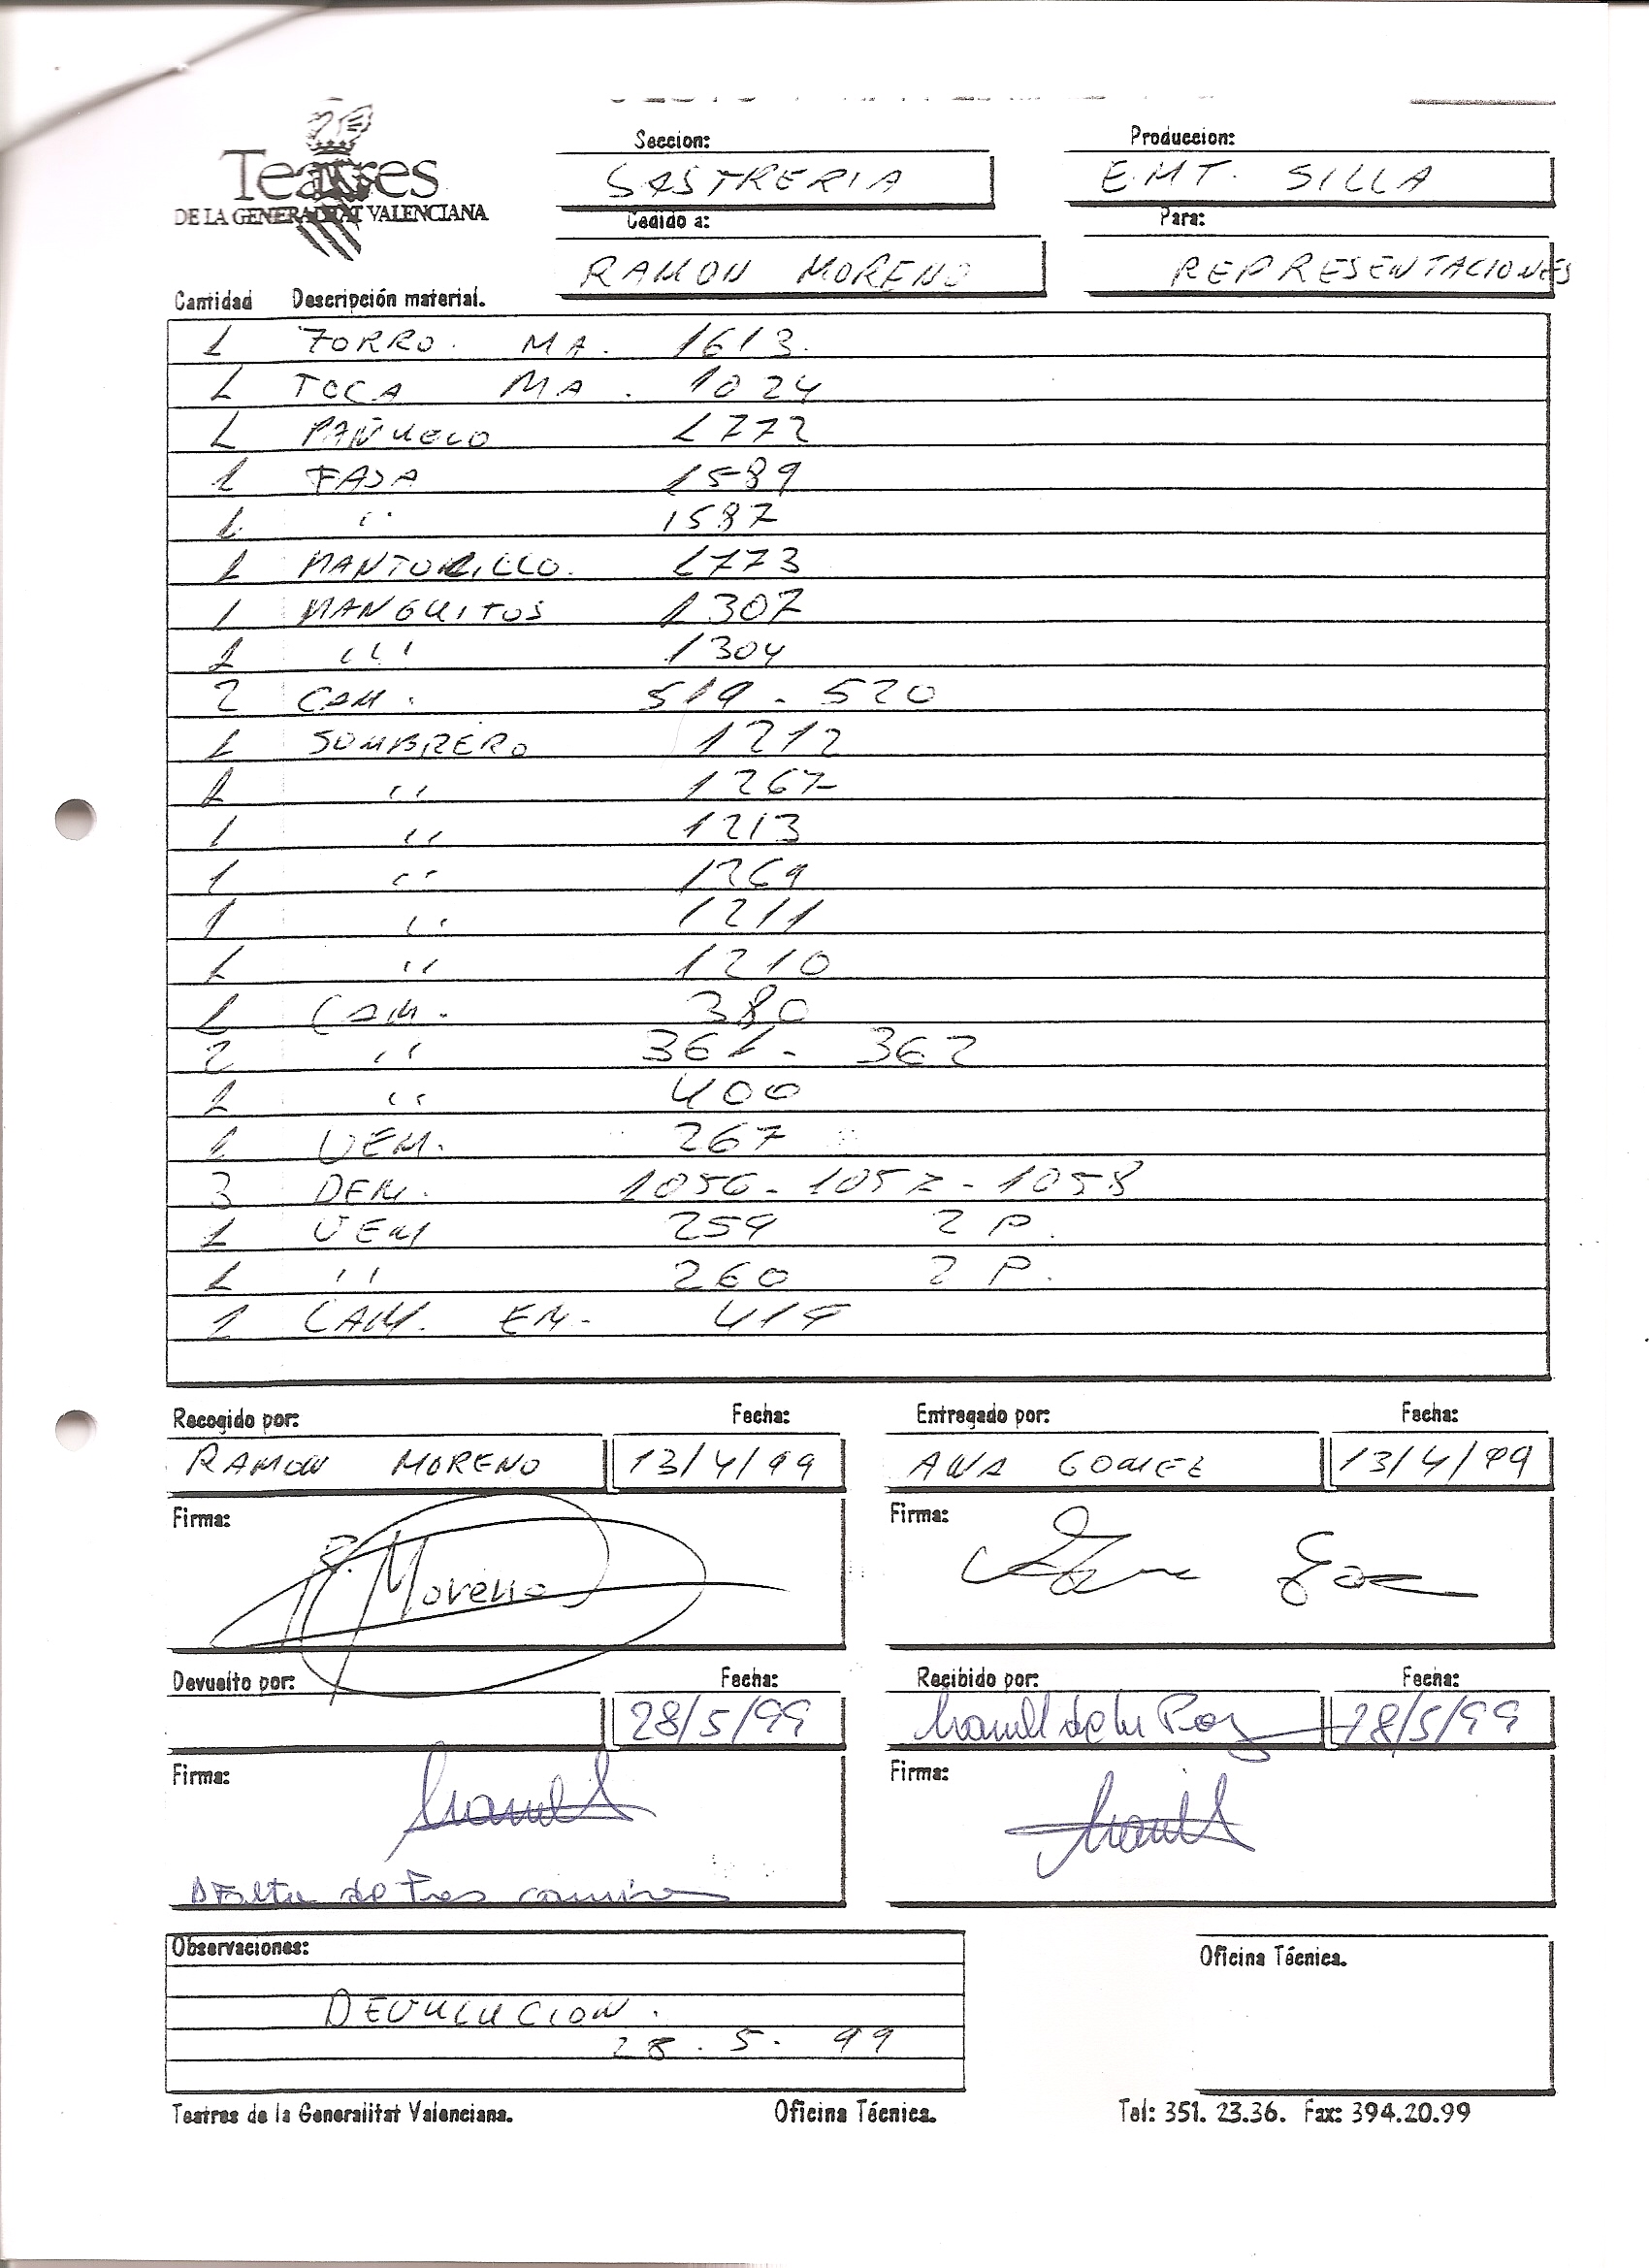 Teatres
DE LA GENERALITAT VALENCIANA
Seccion: Produccion:
SASTRERIA E.M.T. SILLA
Cedido a: Para:
RAMON MORENO REPRESENTACIONES
Cantidad Descripción material.
1 ZORRO. MA. 1613.
1 TOCA MA. 1024
1 PAÑUELO 1772
1 FAJA 1589
1 '' 1587
1 MANTONCILLO. 1773
1 MANGUITOS 1307
1 ''' 1304
2 CAM. 519 - 520
1 SOMBRERO 1212
1 '' 1267
1 '' 1213
1 '' 1269
1 '' 1211
1 '' 1210
1 CAM. 380
2 '' 361 - 362
1 '' 400
1 VEM. 267
3 DEM. 1056 - 1057 - 1058
1 VEM 259 2 P.
1 '' 260 2 P.
1 CAM. EM. 419
Recogido por: Fecha: Entregado por: Fecha:
RAMON MORENO 13/4/99 ANA GOMEZ 13/4/99
Firma: Firma:
R. Moreno
Devuelto por: Fecha: Recibido por: Fecha:
28/5/99 28/5/99
Firma: Firma:
Falta de tres camisas
Observaciones: Oficina Técnica.
DEVULUCION.
28. 5. 99
Teatres de la Generalitat Valenciana. Oficina Técnica. Tel: 351. 23.36. Fax: 394.20.99